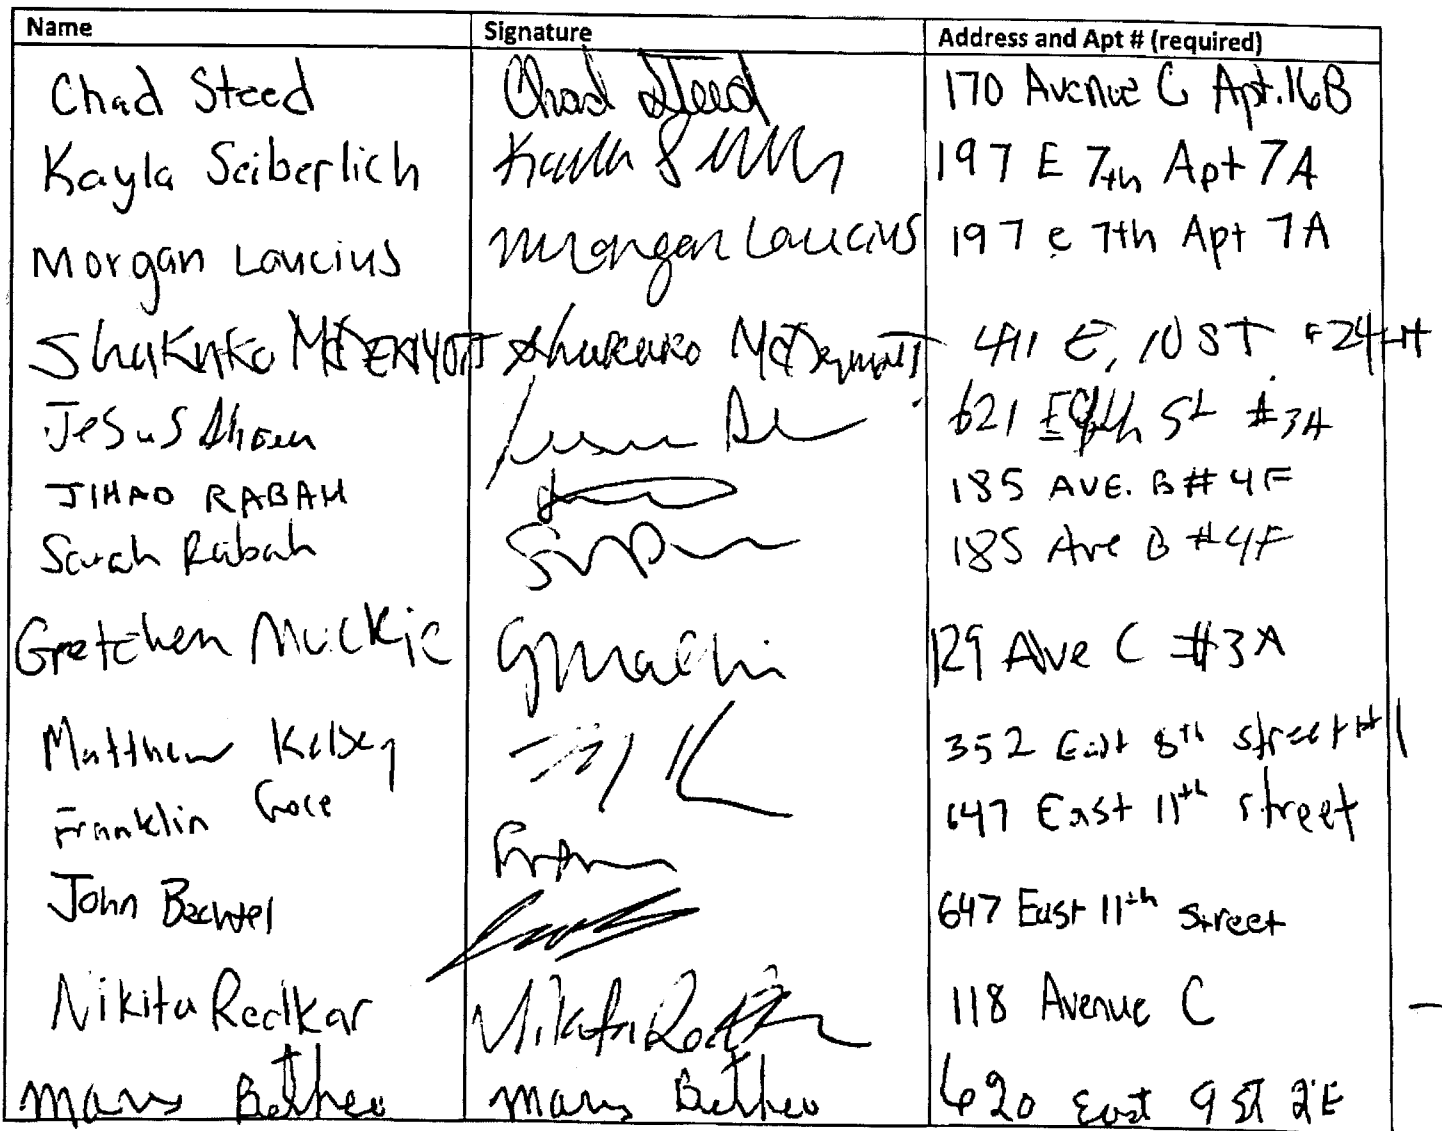 Name Signature Address and Apt # (required)
Chad Steed Chad Steed 170 Avenue C Apt.16B
Kayla Seiberlich Kayla S 197 E 7th Apt 7A
Morgan Laucius Morgan Laucius 197 e 7th Apt 7A
Shukuko McDERMOTT Shukuko McDermott 411 E, 10 ST #24H
Jesus 621 E 9th St #3A
JIHAD RABAH 185 AVE. B# 4F
Sarah Rabah 185 Ave B #4F
Gretchen Mackie 129 Ave C #3A
Matthew Kelsey M K 352 East 8th street #1
Franklin 647 East 11th street
John Bechtel 647 East 11th street
Nikita Redkar Nikita Redkar 118 Avenue C
620 East 9 St 2E